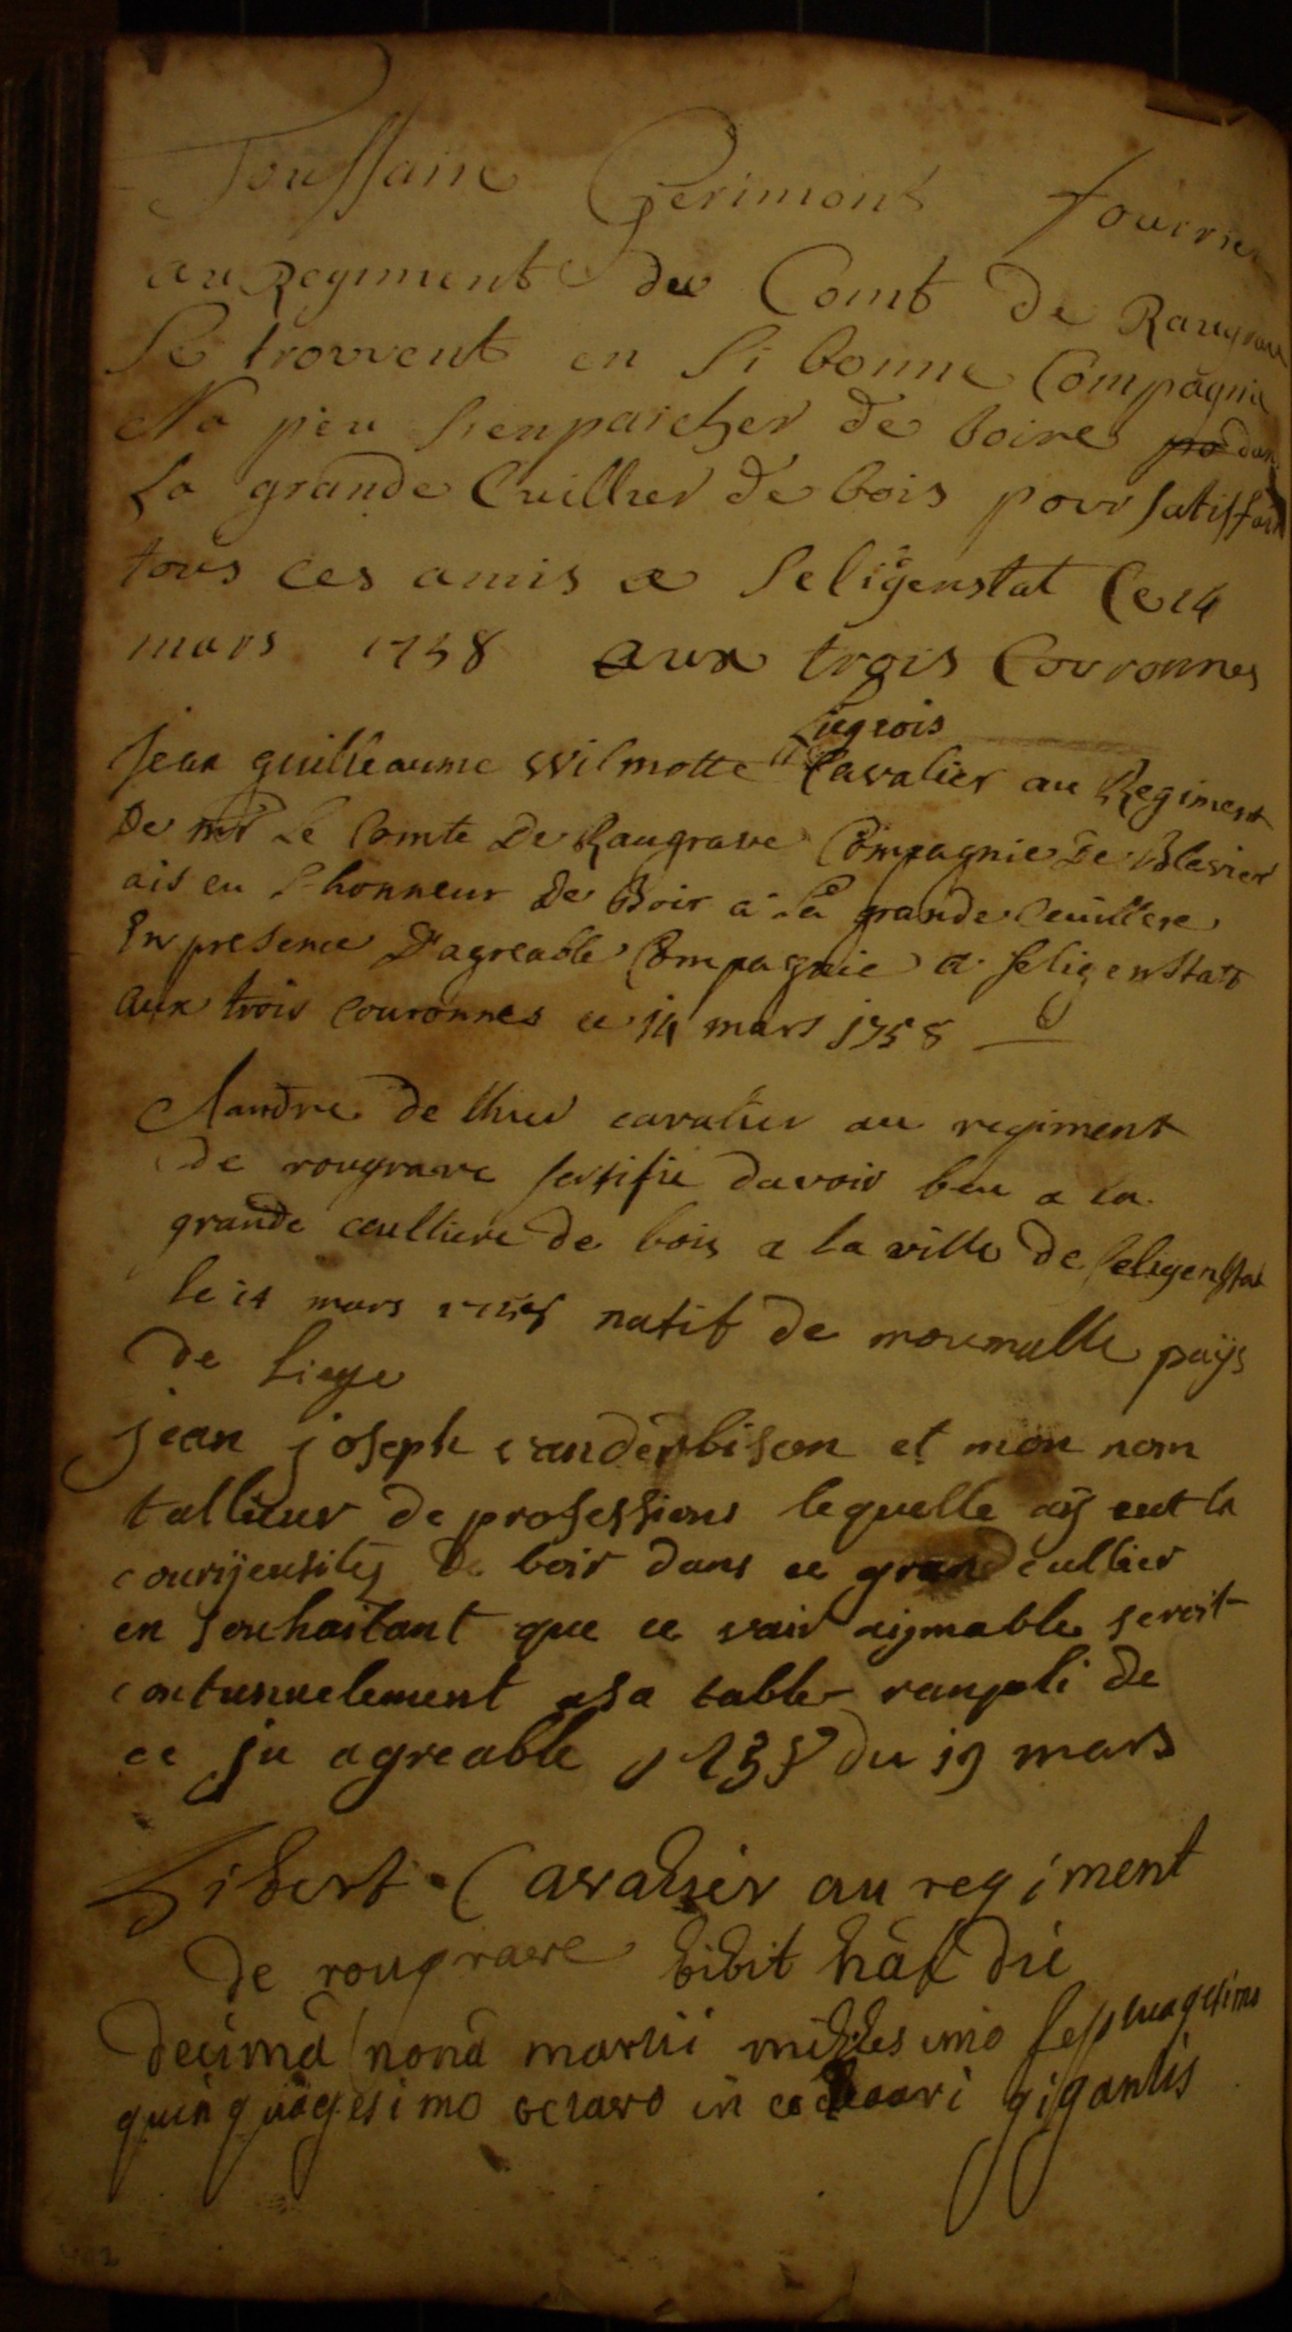 Toussain Gerimont fourrier
au Regiment du Comt de Raugrau
Se trouvent en Si bonne Compagnie
Na peu Senpaicher de boire dan
La grande Cuillier de bois pour Satisfair
tous ces amis a Seligenstat Ce 14
mars 1758 aux trois Couronnes
Liegeois
Jean guilleaume Wilmotte Cavalier au Regiment
De mr Le Comte De Raugrave Compagnie De Blavier
ais eu l'honneur De Boir a La grande Ceuillere
En presence D'agreable Compagnie a Seligenstat
aux trois Couronnes ce 14 mars 1758
de cavalier au regiment
de rougrave sertifie davoir beu a la
grande ceulliere de bois a la ville de Seligenstat
le 14 mars natif de moumalle pays
de Liege
jean joseph vanderbisen et mon nom
tallieur de professions lequelle aij eut la
courijeusitez De boir dans ce grand cullier
en souhaitant que ce vair aijmable seroit
contunuelement asa table ranpli de
ce ju agreable 1758 du 19 mars
Libert Cavalier au regiment
de rougrave bibit hâc die
decimâ nonâ martii millesimo septuagesimo
quinquagesimo octavo in gigantis